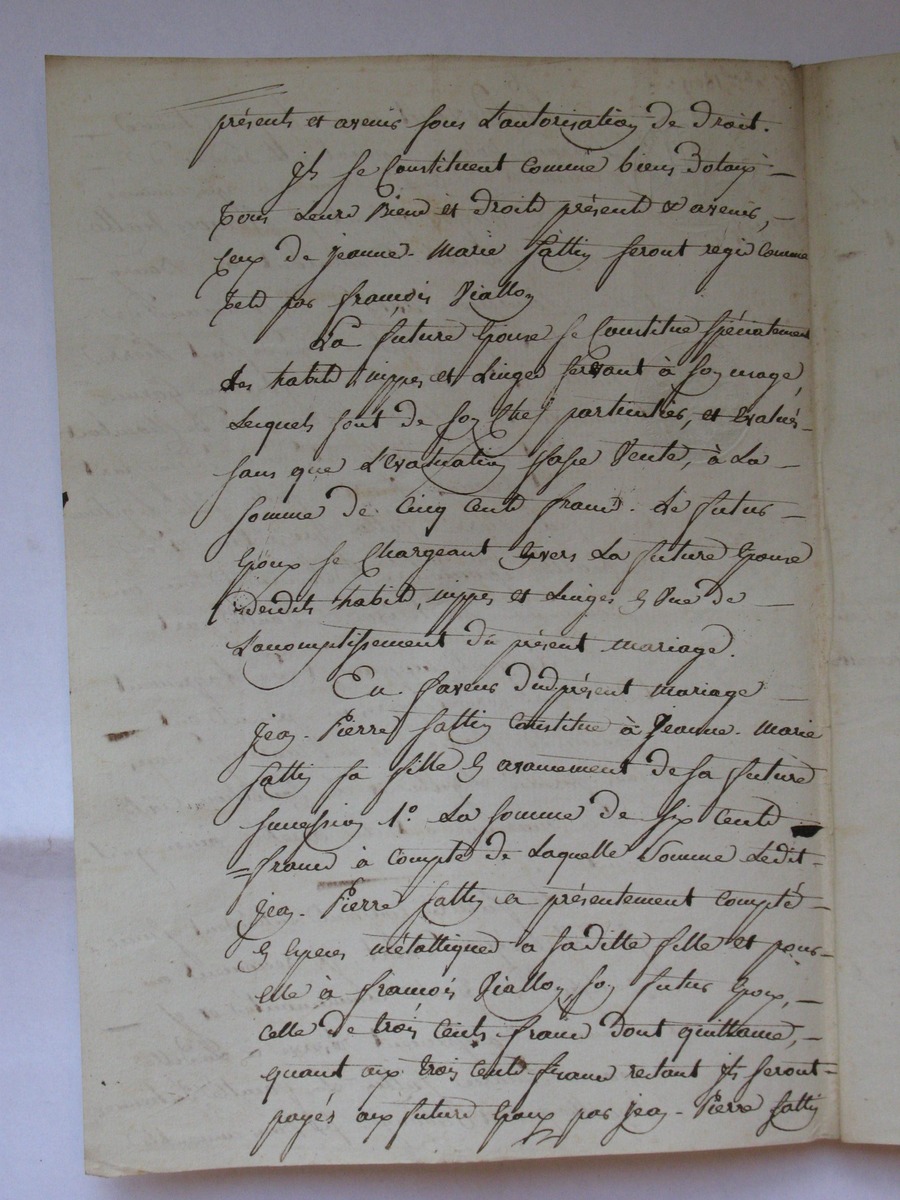 présents et avenir sous L'autorisation de droit.
Ils se Constituent Comme biens Dotaux
tous Leurs Biens et droits présents & avenirs,
Ceux de Jeanne-Marie seront regis Comme
tels par françois Viallon
La future Epouse se Constitue spécialement
Les habits nippes et Linges servant à son usage,
Lesquels sont de son Chef particulier, et Evalués
sans que L'evaluation fasse Vente, à La
somme de Cinq Cents francs. Le futur
Epoux se Chargeant Envers La future Epouse
desdits habits, nippes et Linges En Vue de
L'accomplissement du présent mariage.
En faveur dud. présent mariage
Jean-Pierre Constitue à Jeanne-Marie
sa fille En avancement de sa future
succession 1.º La somme de six Cents
francs à Compte de Laquelle somme Ledit
Jean-Pierre a présentement Compté
En Especes métalliques à saditte fille et pour
elle à françois Viallon, son futur Epoux,
celle de trois Cents francs dont quittance,
quant aux trois Cents francs restant ils seront
payés aux futurs Epoux par Jean-Pierre